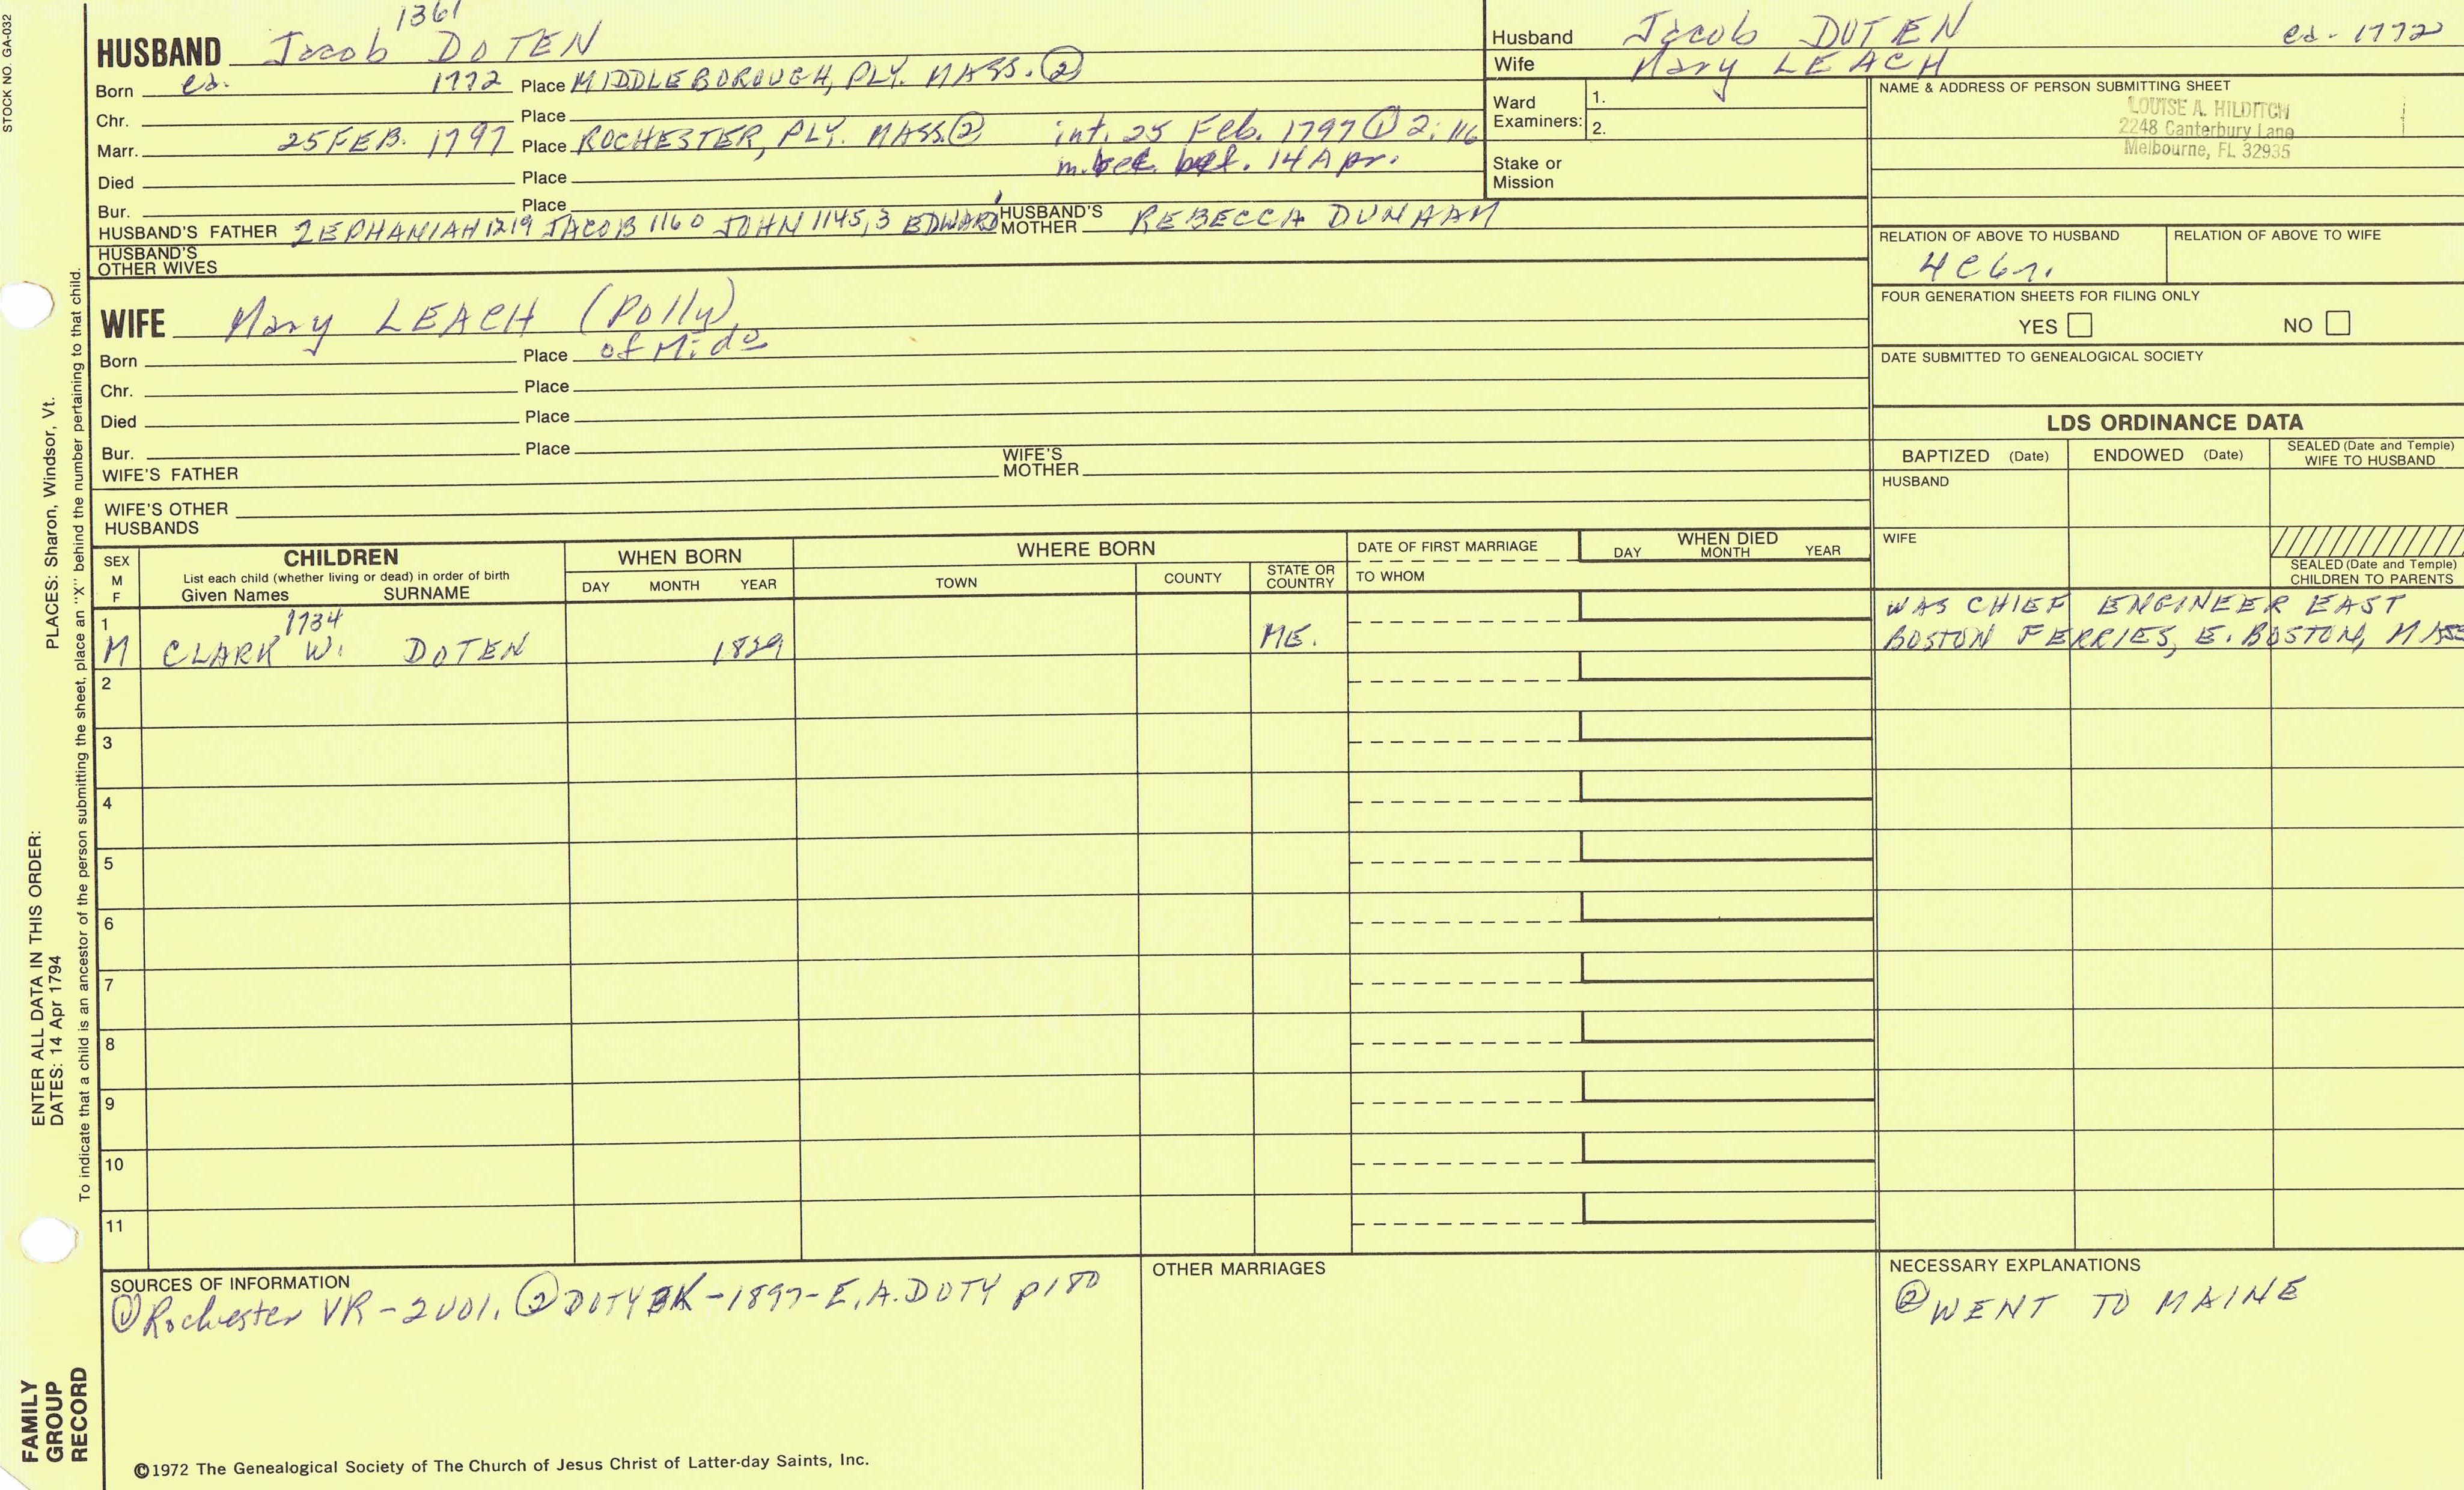 STOCK NO. GA-032
1361
HUSBAND Jacob DOTEN
Born ca. 1772 Place MIDDLEBOROUGH, PLY. MASS. ②
Chr. Place
Marr. 25 FEB. 1797 Place ROCHESTER, PLY. MASS. ② int. 25 Feb. 1797 ① 2:116
m. bef. 14 Apr.
Died Place
Bur. Place
HUSBAND'S FATHER ZEPHANIAH 1219 JACOB 1160 JOHN 1145,3 EDWARD1 HUSBAND'S MOTHER REBECCA DUNHAM
HUSBAND'S
OTHER WIVES
WIFE Mary LEACH (Polly)
Born Place of Mido
Chr. Place
Died Place
Bur. Place
WIFE'S FATHER WIFE'S MOTHER
WIFE'S OTHER
HUSBANDS
Husband Jacob DOTEN ca. 1772
Wife Mary LEACH
Ward
Examiners: 1.
2.
Stake or
Mission
NAME & ADDRESS OF PERSON SUBMITTING SHEET
LOUISE A. HILDITCH
2248 Canterbury Lane
Melbourne, FL 32935
RELATION OF ABOVE TO HUSBAND RELATION OF ABOVE TO WIFE
4C6r.
FOUR GENERATION SHEETS FOR FILING ONLY
YES NO
DATE SUBMITTED TO GENEALOGICAL SOCIETY
LDS ORDINANCE DATA
BAPTIZED (Date) ENDOWED (Date) SEALED (Date and Temple) WIFE TO HUSBAND
HUSBAND
WIFE
SEALED (Date and Temple)
CHILDREN TO PARENTS
SEX M F
CHILDREN
List each child (whether living or dead) in order of birth
Given Names SURNAME
WHEN BORN
DAY MONTH YEAR
WHERE BORN
TOWN COUNTY STATE OR COUNTRY
DATE OF FIRST MARRIAGE
TO WHOM
WHEN DIED
DAY MONTH YEAR
1 1734
M CLARK W. DOTEN 1829 ME.
WAS CHIEF ENGINEER EAST
BOSTON FERRIES, E. BOSTON, MASS
2
3
4
5
6
7
8
9
10
11
SOURCES OF INFORMATION
① Rochester VR - 2 VOl. ② DOTY BK - 1897 - E. A. DOTY p 180
OTHER MARRIAGES
NECESSARY EXPLANATIONS
② WENT TO MAINE
©1972 The Genealogical Society of The Church of Jesus Christ of Latter-day Saints, Inc.
FAMILY
GROUP
RECORD
ENTER ALL DATA IN THIS ORDER:
DATES: 14 Apr 1794
PLACES: Sharon, Windsor, Vt.
To indicate that a child is an ancestor of the person submitting the sheet, place an "X" behind the number pertaining to that child.